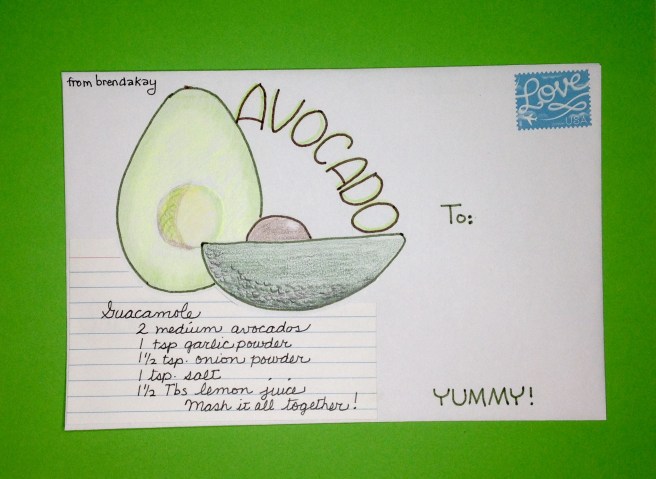 from brendakay
AVOCADO
Love
USA
To:
Guacamole
2 medium avocados
1 tsp garlic powder
1½ tsp. onion powder
1 tsp. salt
1½ Tbs lemon juice
Mash it all together!
YUMMY!